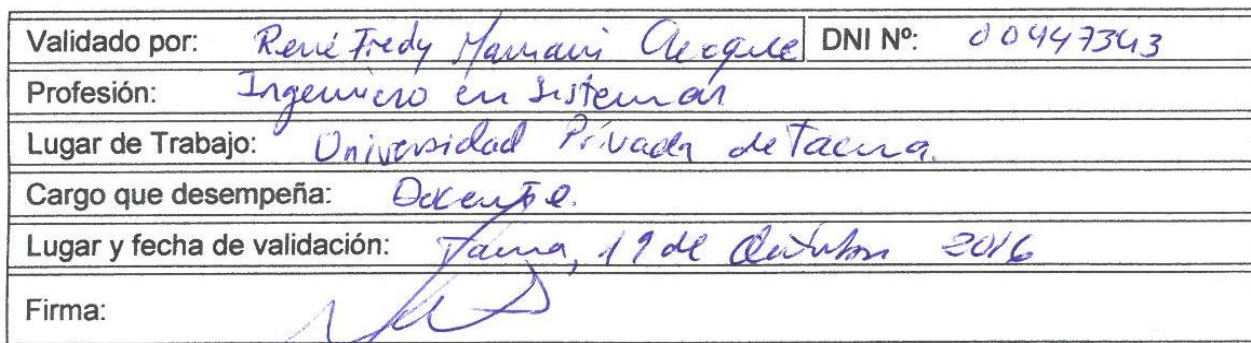 Validado por: René Fredy Mamani Choque DNI Nº: 00447343
Profesión: Ingeniero en Sistemas
Lugar de Trabajo: Universidad Privada de Tacna.
Cargo que desempeña: Docente.
Lugar y fecha de validación: Tacna, 19 de Octubre 2016
Firma: